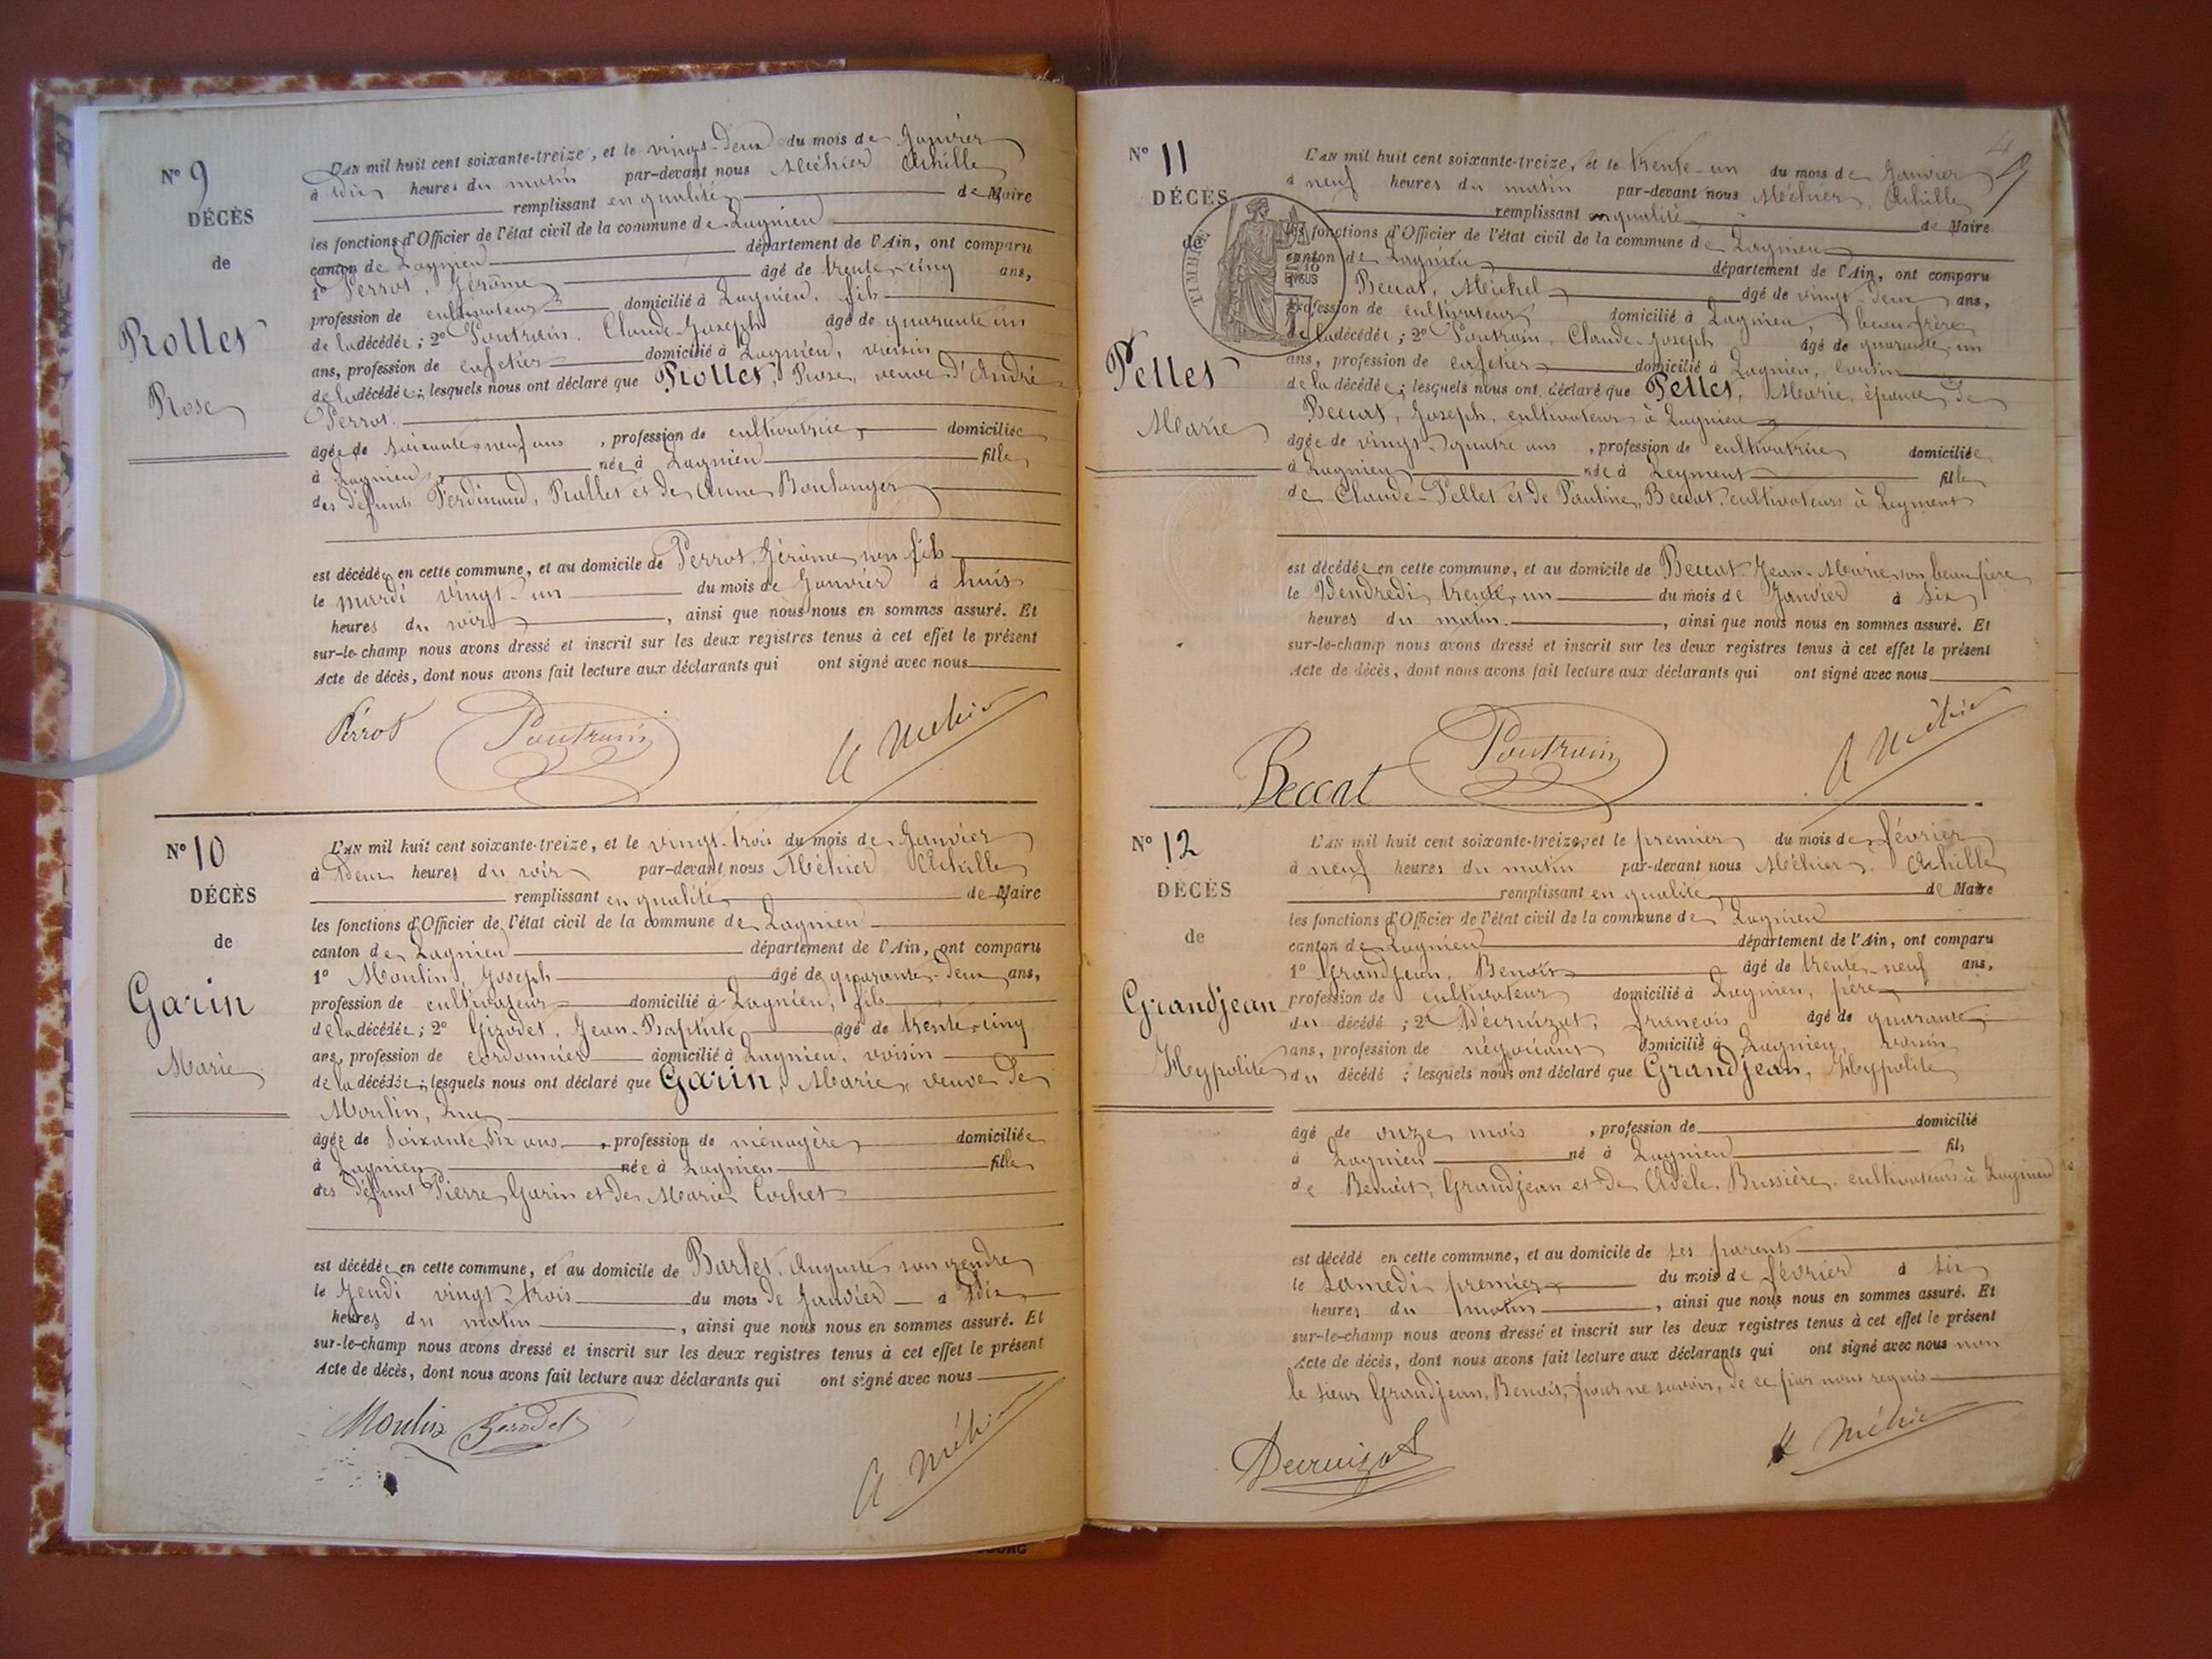 N° 9
DÉCÈS
de
Rollet
Rose
L'AN mil huit cent soixante-treize, et le vingt-deux du mois de Janvier
à dix heures du matin par-devant nous Méhier Achille
remplissant en qualité de Maire
les fonctions d'Officier de l'état civil de la commune de Lagnieu
canton de Lagnieu département de l'Ain, ont comparu
1° Perrot, Jérôme âgé de trente-cinq ans,
profession de cultivateur domicilié à Lagnieu, fils
de la décédée ; 2° Poutrain, Claude-Joseph âgé de quarante un
ans, profession de cafetier domicilié à Lagnieu, voisin
de la décédée ; lesquels nous ont déclaré que Rollet, Rose, veuve d'André
Perrot.
âgée de soixante-neuf ans, profession de cultivatrice domiciliée
à Lagnieu née à Lagnieu fille
des défunts Ferdinand, Rollet et de Anne Boulanger
est décédée en cette commune, et au domicile de Perrot Jérôme son fils
le mardi vingt-un du mois de Janvier à huit
heures du soir, ainsi que nous nous en sommes assuré. Et
sur-le-champ nous avons dressé et inscrit sur les deux registres tenus à cet effet le présent
Acte de décès, dont nous avons fait lecture aux déclarants qui ont signé avec nous
Perrot Poutrain A Méhier
N° 10
DÉCÈS
de
Garin
Marie
L'AN mil huit cent soixante-treize, et le vingt-trois du mois de Janvier
à Deux heures du soir par-devant nous Méhier Achille
remplissant en qualité de Maire
les fonctions d'Officier de l'état civil de la commune de Lagnieu
canton de Lagnieu département de l'Ain, ont comparu
1° Moulin, Joseph âgé de quarante-deux ans,
profession de cultivateur domicilié à Lagnieu, fils
de la décédée ; 2° Girodet, Jean-Baptiste âgé de trente-cinq
ans, profession de cordonnier domicilié à Lagnieu, voisin
de la décédée ; lesquels nous ont déclaré que Garin, Marie, veuve de
Moulin, Luc
âgée de soixante dix ans, profession de ménagère domiciliée
à Lagnieu née à Lagnieu fille
des défunt Pierre Garin et de Marie Cochet
est décédée en cette commune, et au domicile de Barlet, Auguste son gendre
le Jeudi vingt-trois du mois de Janvier à Dix
heures du matin, ainsi que nous nous en sommes assuré. Et
sur-le-champ nous avons dressé et inscrit sur les deux registres tenus à cet effet le présent
Acte de décès, dont nous avons fait lecture aux déclarants qui ont signé avec nous
Moulin Girodet A Méhier
N° 11
DÉCÈS
de
TIMBRE
10
EN SUS
Pellet
Marie
L'AN mil huit cent soixante-treize, et le trente-un du mois de Janvier
à neuf heures du matin par-devant nous Méhier, Achille
remplissant en qualité de Maire
les fonctions d'Officier de l'état civil de la commune de Lagnieu
canton de Lagnieu département de l'Ain, ont comparu
Beccat, Michel âgé de vingt-deux ans,
profession de cultivateur domicilié à Lagnieu, beau-frère
de la décédée ; 2° Poutrain, Claude-Joseph âgé de quarante-un
ans, profession de cafetier domicilié à Lagnieu, cousin
de la décédée ; lesquels nous ont déclaré que Pellet, Marie, épouse de
Beccat, Joseph, cultivateur à Lagnieu
âgée de vingt-quatre ans, profession de cultivatrice domiciliée
à Lagnieu née à Leyment fille
de Claude Pellet et de Pauline Beccat, cultivateurs à Leyment
est décédée en cette commune, et au domicile de Beccat Jean-Marie son beau père
le Vendredi trente-un du mois de Janvier à six
heures du matin., ainsi que nous nous en sommes assuré. Et
sur-le-champ nous avons dressé et inscrit sur les deux registres tenus à cet effet le présent
Acte de décès, dont nous avons fait lecture aux déclarants qui ont signé avec nous
Beccat Poutrain A Méhier
N° 12
DÉCÈS
de
Grandjean
Hypolite
L'AN mil huit cent soixante-treize, et le premier du mois de février
à neuf heures du matin par-devant nous Méhier, Achille
remplissant en qualité de Maire
les fonctions d'Officier de l'état civil de la commune de Lagnieu
canton de Lagnieu département de l'Ain, ont comparu
1° Grandjean, Benoît âgé de trente-neuf ans,
profession de cultivateur domicilié à Lagnieu, père
du décédé ; 2° Décruizat, françois âgé de quarante
ans, profession de négociant domicilié à Lagnieu, voisin
du décédé ; lesquels nous ont déclaré que Grandjean, Hypolite
âgé de onze mois, profession de domicilié
à Lagnieu né à Lagnieu fils
de Benoît, Grandjean et de Adèle, Bussière, cultivateurs à Lagnieu
est décédé en cette commune, et au domicile de ses parents
le samedi premier du mois de février à six
heures du matin, ainsi que nous nous en sommes assuré. Et
sur-le-champ nous avons dressé et inscrit sur les deux registres tenus à cet effet le présent
Acte de décès, dont nous avons fait lecture aux déclarants qui ont signé avec nous non
le sieur Grandjean, Benoît, pour ne savoir, de ce par nous requis
Decruizat A Méhier